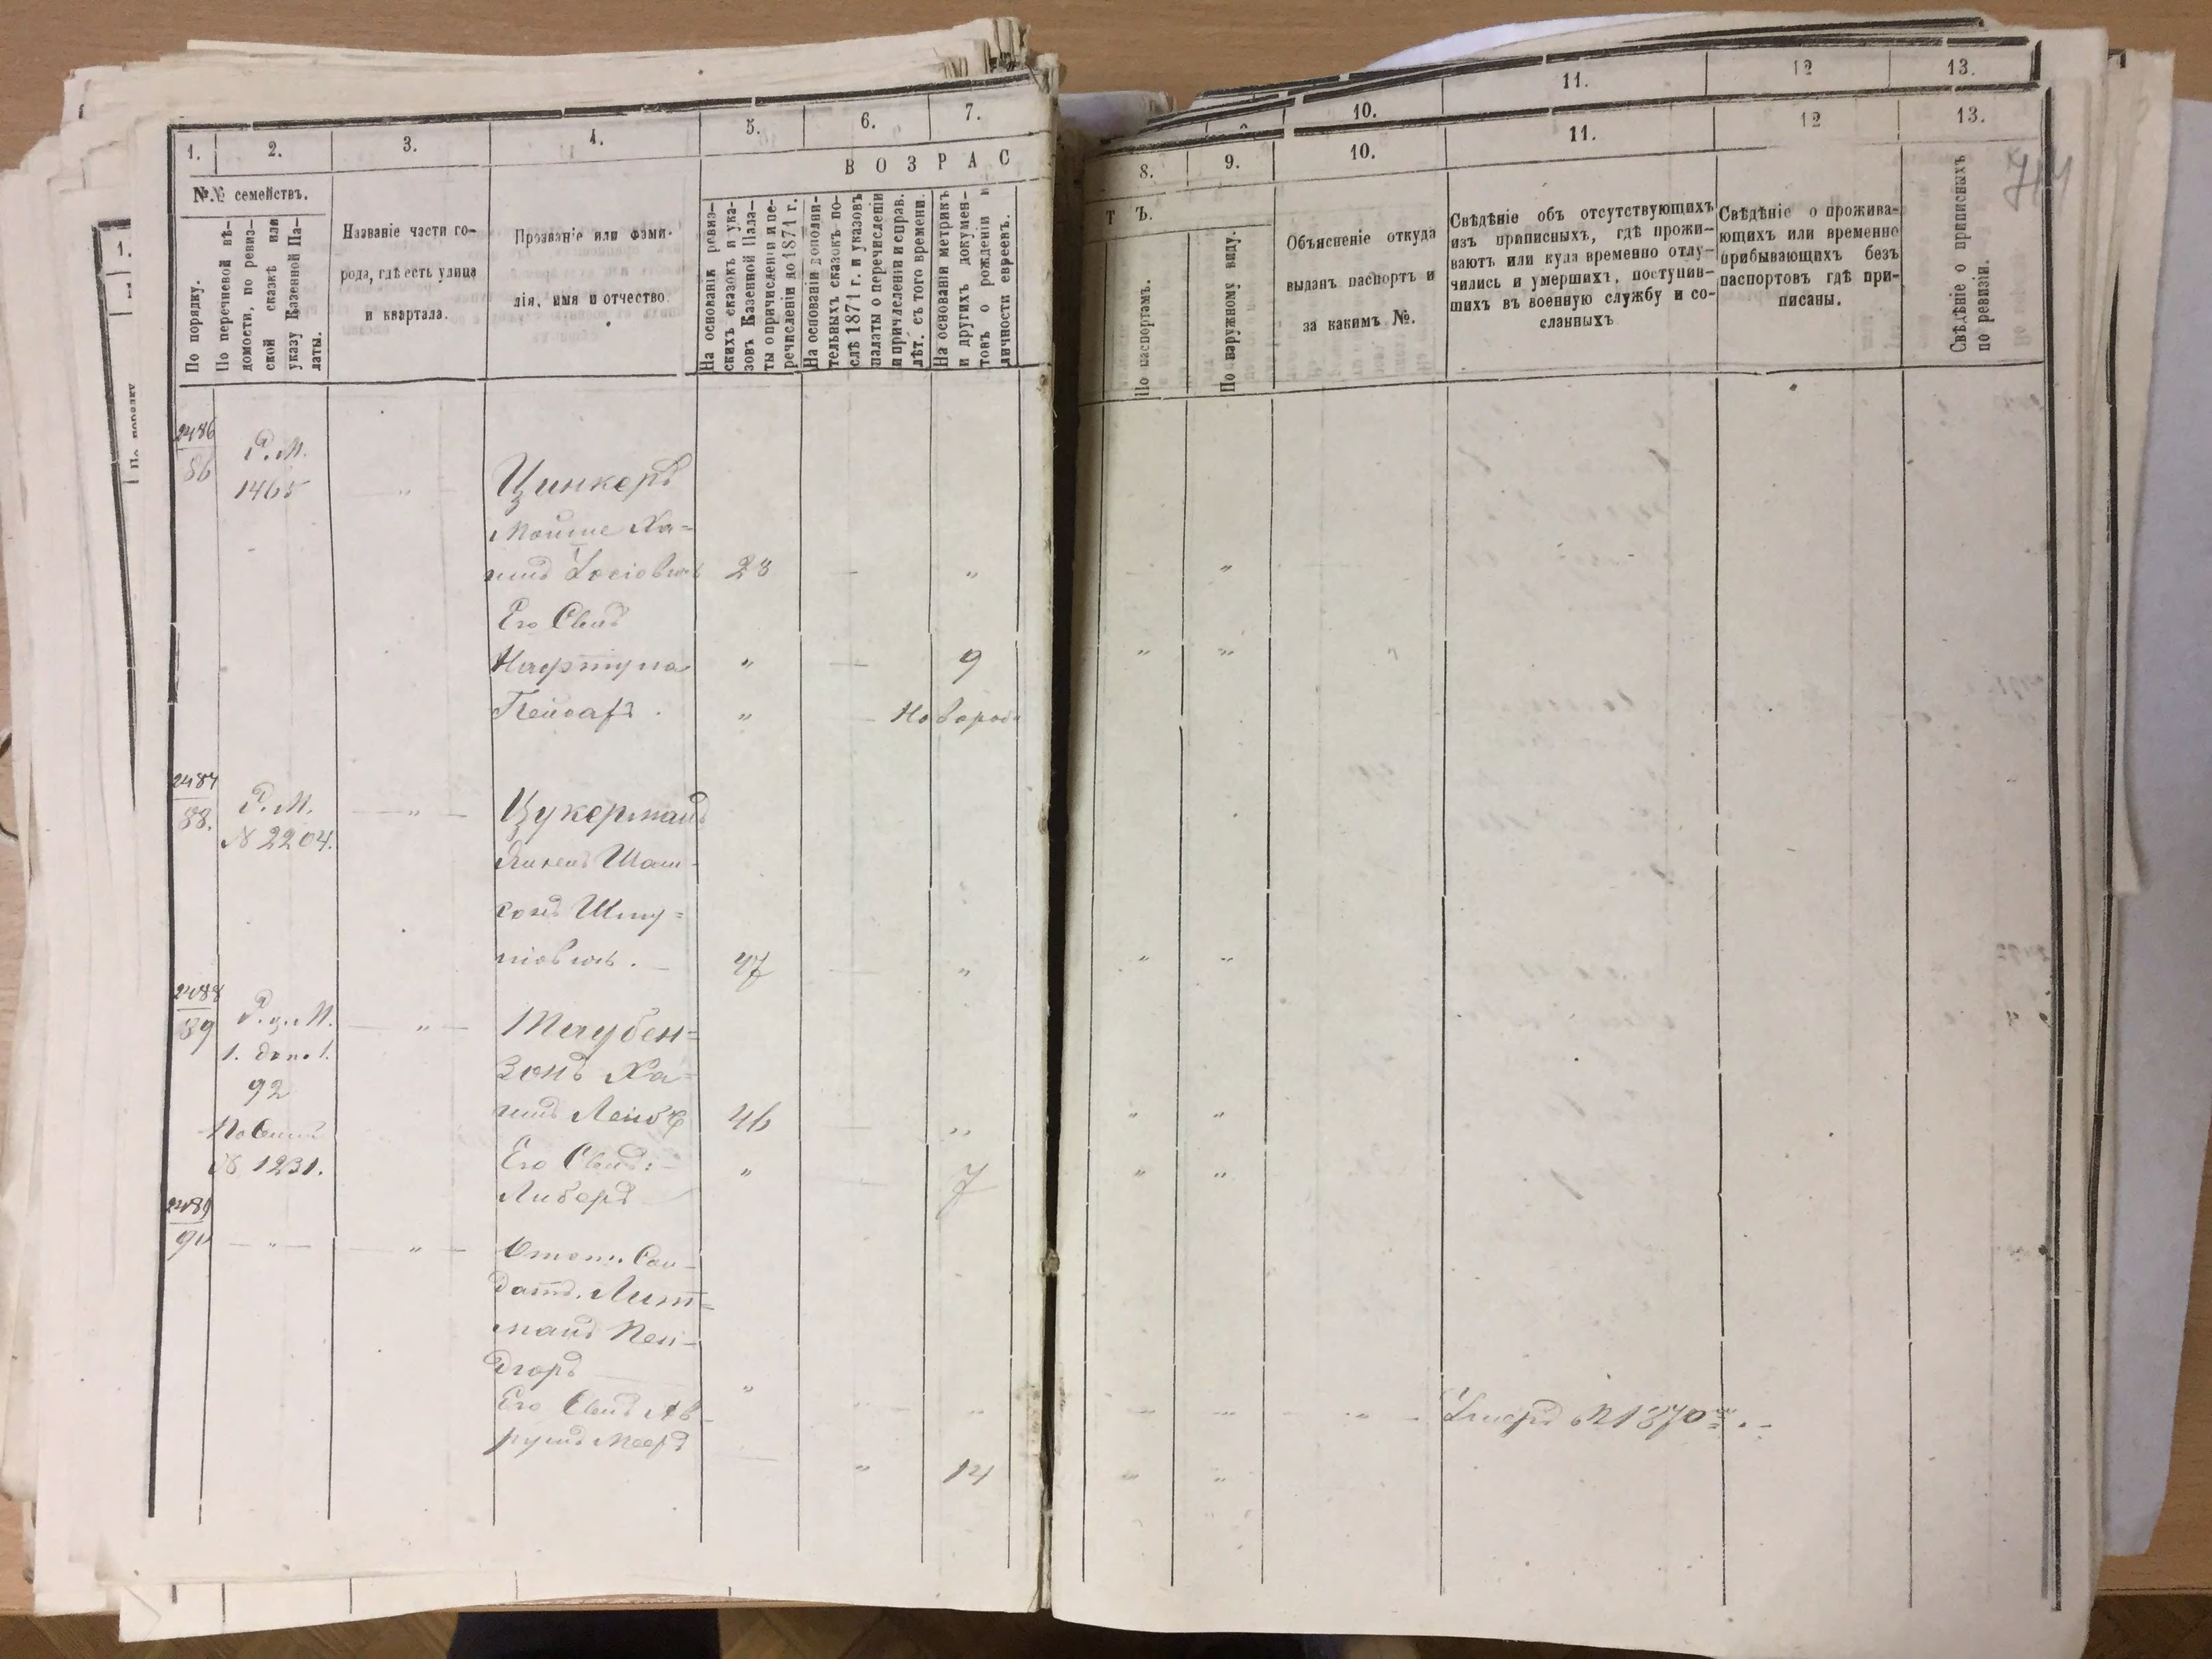 11. 12 13.
10.
1. 2. 3. 4. 5. 6. 7.
8. 9. 10. 11. 12 13.
№.№ семействъ.
По порядку.
По перечневой вѣ-
домости, по ревиз-
ской сказкѣ или
указу Казенной Па-
латы.
Названіе части го-
рода, гдѣ есть улица
и квартала.
Прозваніе или фами-
лія, имя и отчество.
ВОЗРАС
На основаніи ревиз-
скихъ сказокъ и ука-
зовъ Казенной Пала-
ты о причисленіи и пе-
речисленіи до 1871 г.
На основаніи дополни-
тельныхъ сказокъ по-
слѣ 1871 г. и указовъ
палаты о перечисленіи
и причисленіи и справ.
лѣт. съ того времени.
На основаніи метрикъ
и другихъ докумен-
товъ о рожденіи и
личности евреевъ.
ТЪ.
По паспортамъ.
По наружному виду.
Объясненіе откуда
выданъ паспортъ и
за какимъ №.
Свѣдѣніе объ отсутствующихъ
изъ приписныхъ, гдѣ прожи-
ваютъ или куда временно отлу-
чились и умершихъ, поступив-
шихъ въ военную службу и со-
сланныхъ
Свѣдѣніе о прожива-
ющихъ или временно
прибывающихъ безъ
паспортовъ гдѣ при-
писаны.
Свѣдѣніе о приписныхъ
по ревизіи.
2486
86
Р. М.
1465
Цинкеръ
Мойше Ха-
имъ Іосіовичъ 28
Его Сынъ
Нафтула 9
Пейсахъ. Новорож
2487
88.
Р. М.
№ 2204.
Цукерманъ
Янкель Шам-
сонъ Шму-
ліовичъ. 47
2488
89
1. доп. 1.
92
№ 1231.
Таубен=
зонъ Ха=
имъ Лейб 46
Его Сынъ:
Либеръ 7
2489
90
Лит=
манъ
Его Сынъ Ав-
румъ Мееръ 14
Умеръ въ 1870